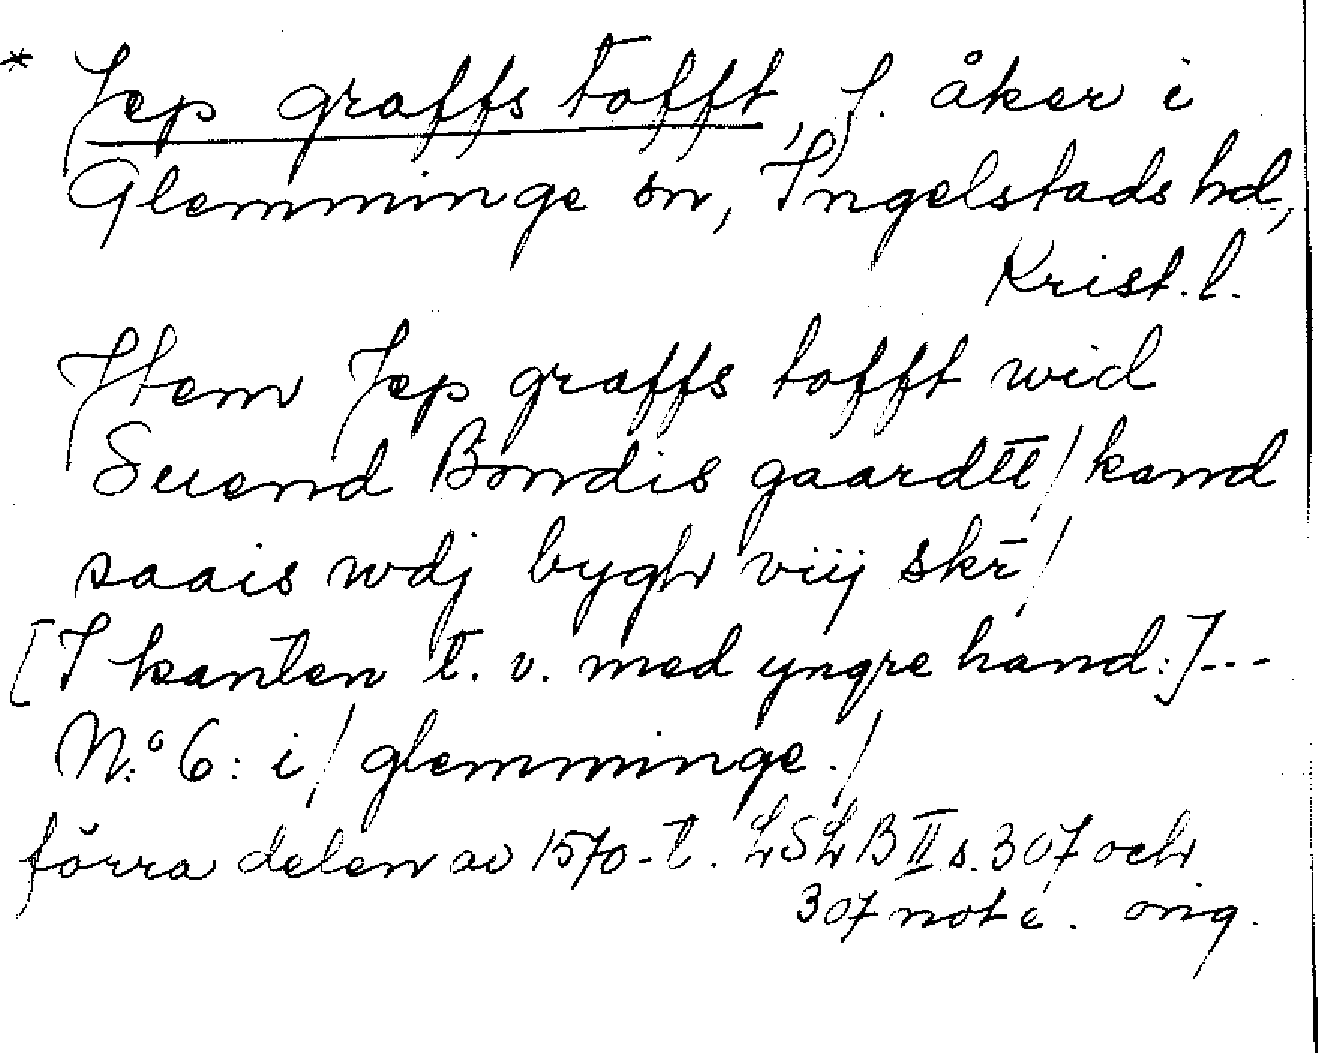 * Jep graffs tofft, f. åker i
Glemminge sn, Ingelstads hd,
Krist. l.
Jtem Jep graffs tofft wid
Suend Bondis gaardtt / kand
saais wdj bygh viij skr̄ /
[I kanten t. v. med yngre hand:] ---
N:o 6: i / glemminge . /
förra delen av 1570-t. LSLB II s. 307 och
307 not c. orig.